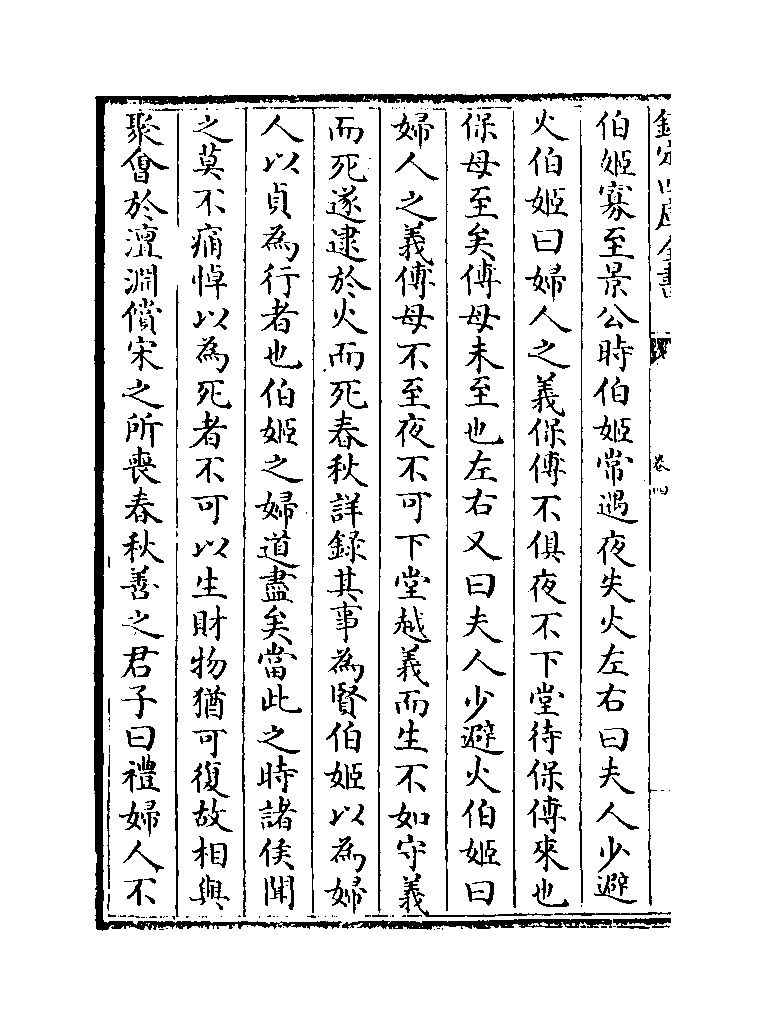 欽定四庫全書
卷四
伯姬寡至景公時伯姬常遇夜失火左右曰夫人少避
火伯姬曰婦人之義保傅不俱夜不下堂待保傅來也
保母至矣傅母未至也左右又曰夫人少避火伯姬曰
婦人之義傅母不至夜不可下堂越義而生不如守義
而死遂逮於火而死春秋詳錄其事為賢伯姬以為婦
人以貞為行者也伯姬之婦道盡矣當此之時諸侯聞
之莫不痛悼以為死者不可以生財物猶可復故相與
聚會於澶淵償宋之所喪春秋善之君子曰禮婦人不